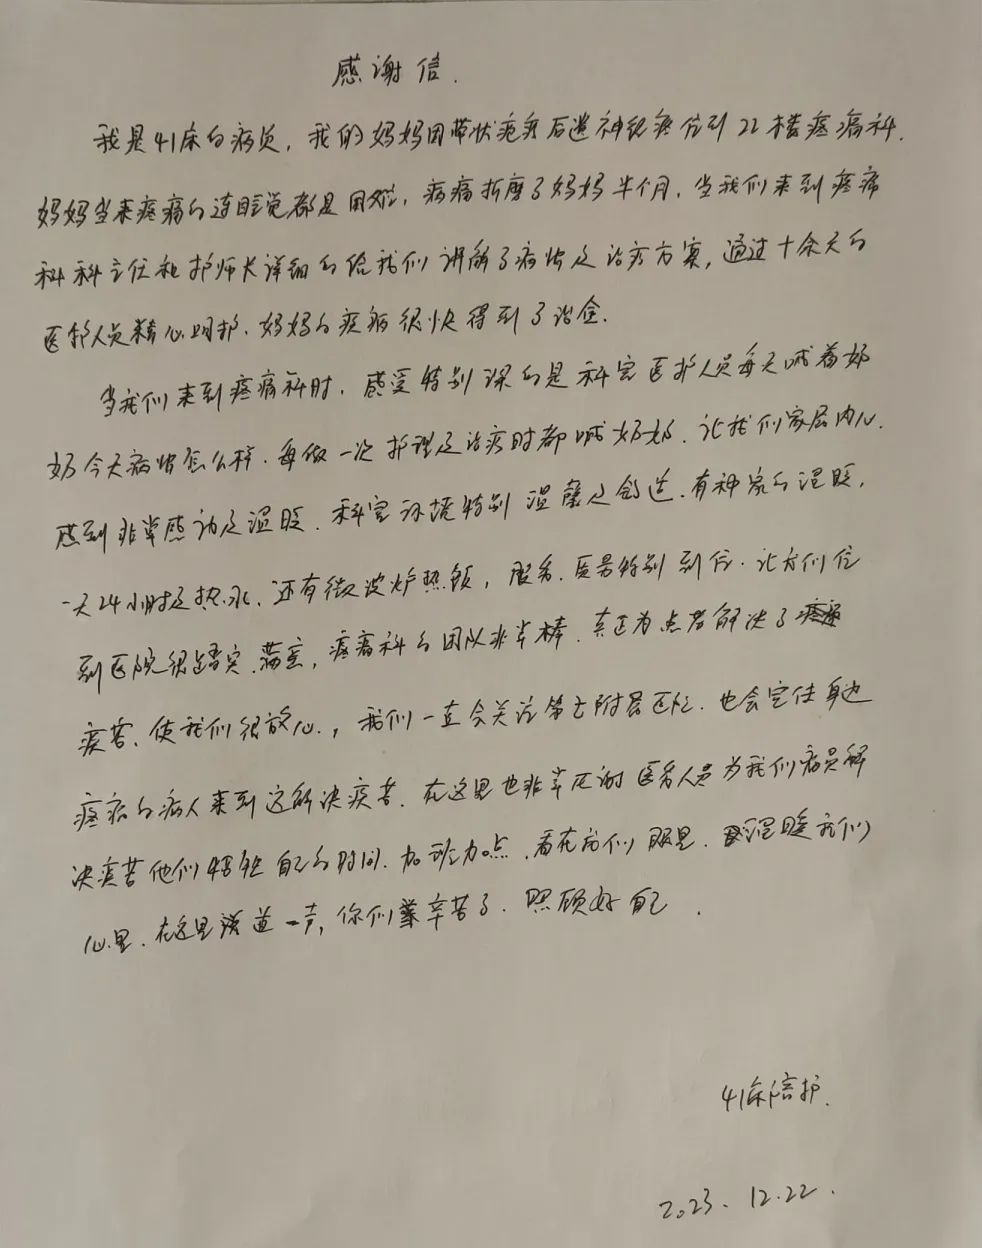 感谢信.
我是41床的病员，我的妈妈因带状疱疹后遗神经痛住到22楼疼痛科.
妈妈当来疼痛的连睡觉都是困难，病痛折磨了妈妈半个月，当我们来到疼痛
科科主任和护师长详细的给我们讲解了病情及治疗方案，通过十余天的
医护人员精心照护.妈妈的疾病很快得到了治愈.
当我们来到疼痛科时，感受特别深的是科室医护人员每天喊着奶
奶今天病情怎么样.每做一次护理及治疗时都喊奶奶.让我们家属内心.
感到非常感动及温暖.科室环境特别温馨及舒适.有种家的温暖，
一天24小时及热水.还有微波炉热饭，服务.质量特别到位.让我们住
到医院很踏实.满意，疼痛科的团队非常棒.真正为患者解决了
疾苦、使我们很放心.，我们一直会关注第七附属医院.也会定住身边
疼痛的病人来到这解决疾苦.在这里也非常感谢医务人员为我们病员解
决疾苦他们牺牲自己的时间.加班加点.看在我们眼里.温暖我们
心里.在这里说道一声，你们辛苦了.照顾好自己.
41床陪护.
2023.12.22.